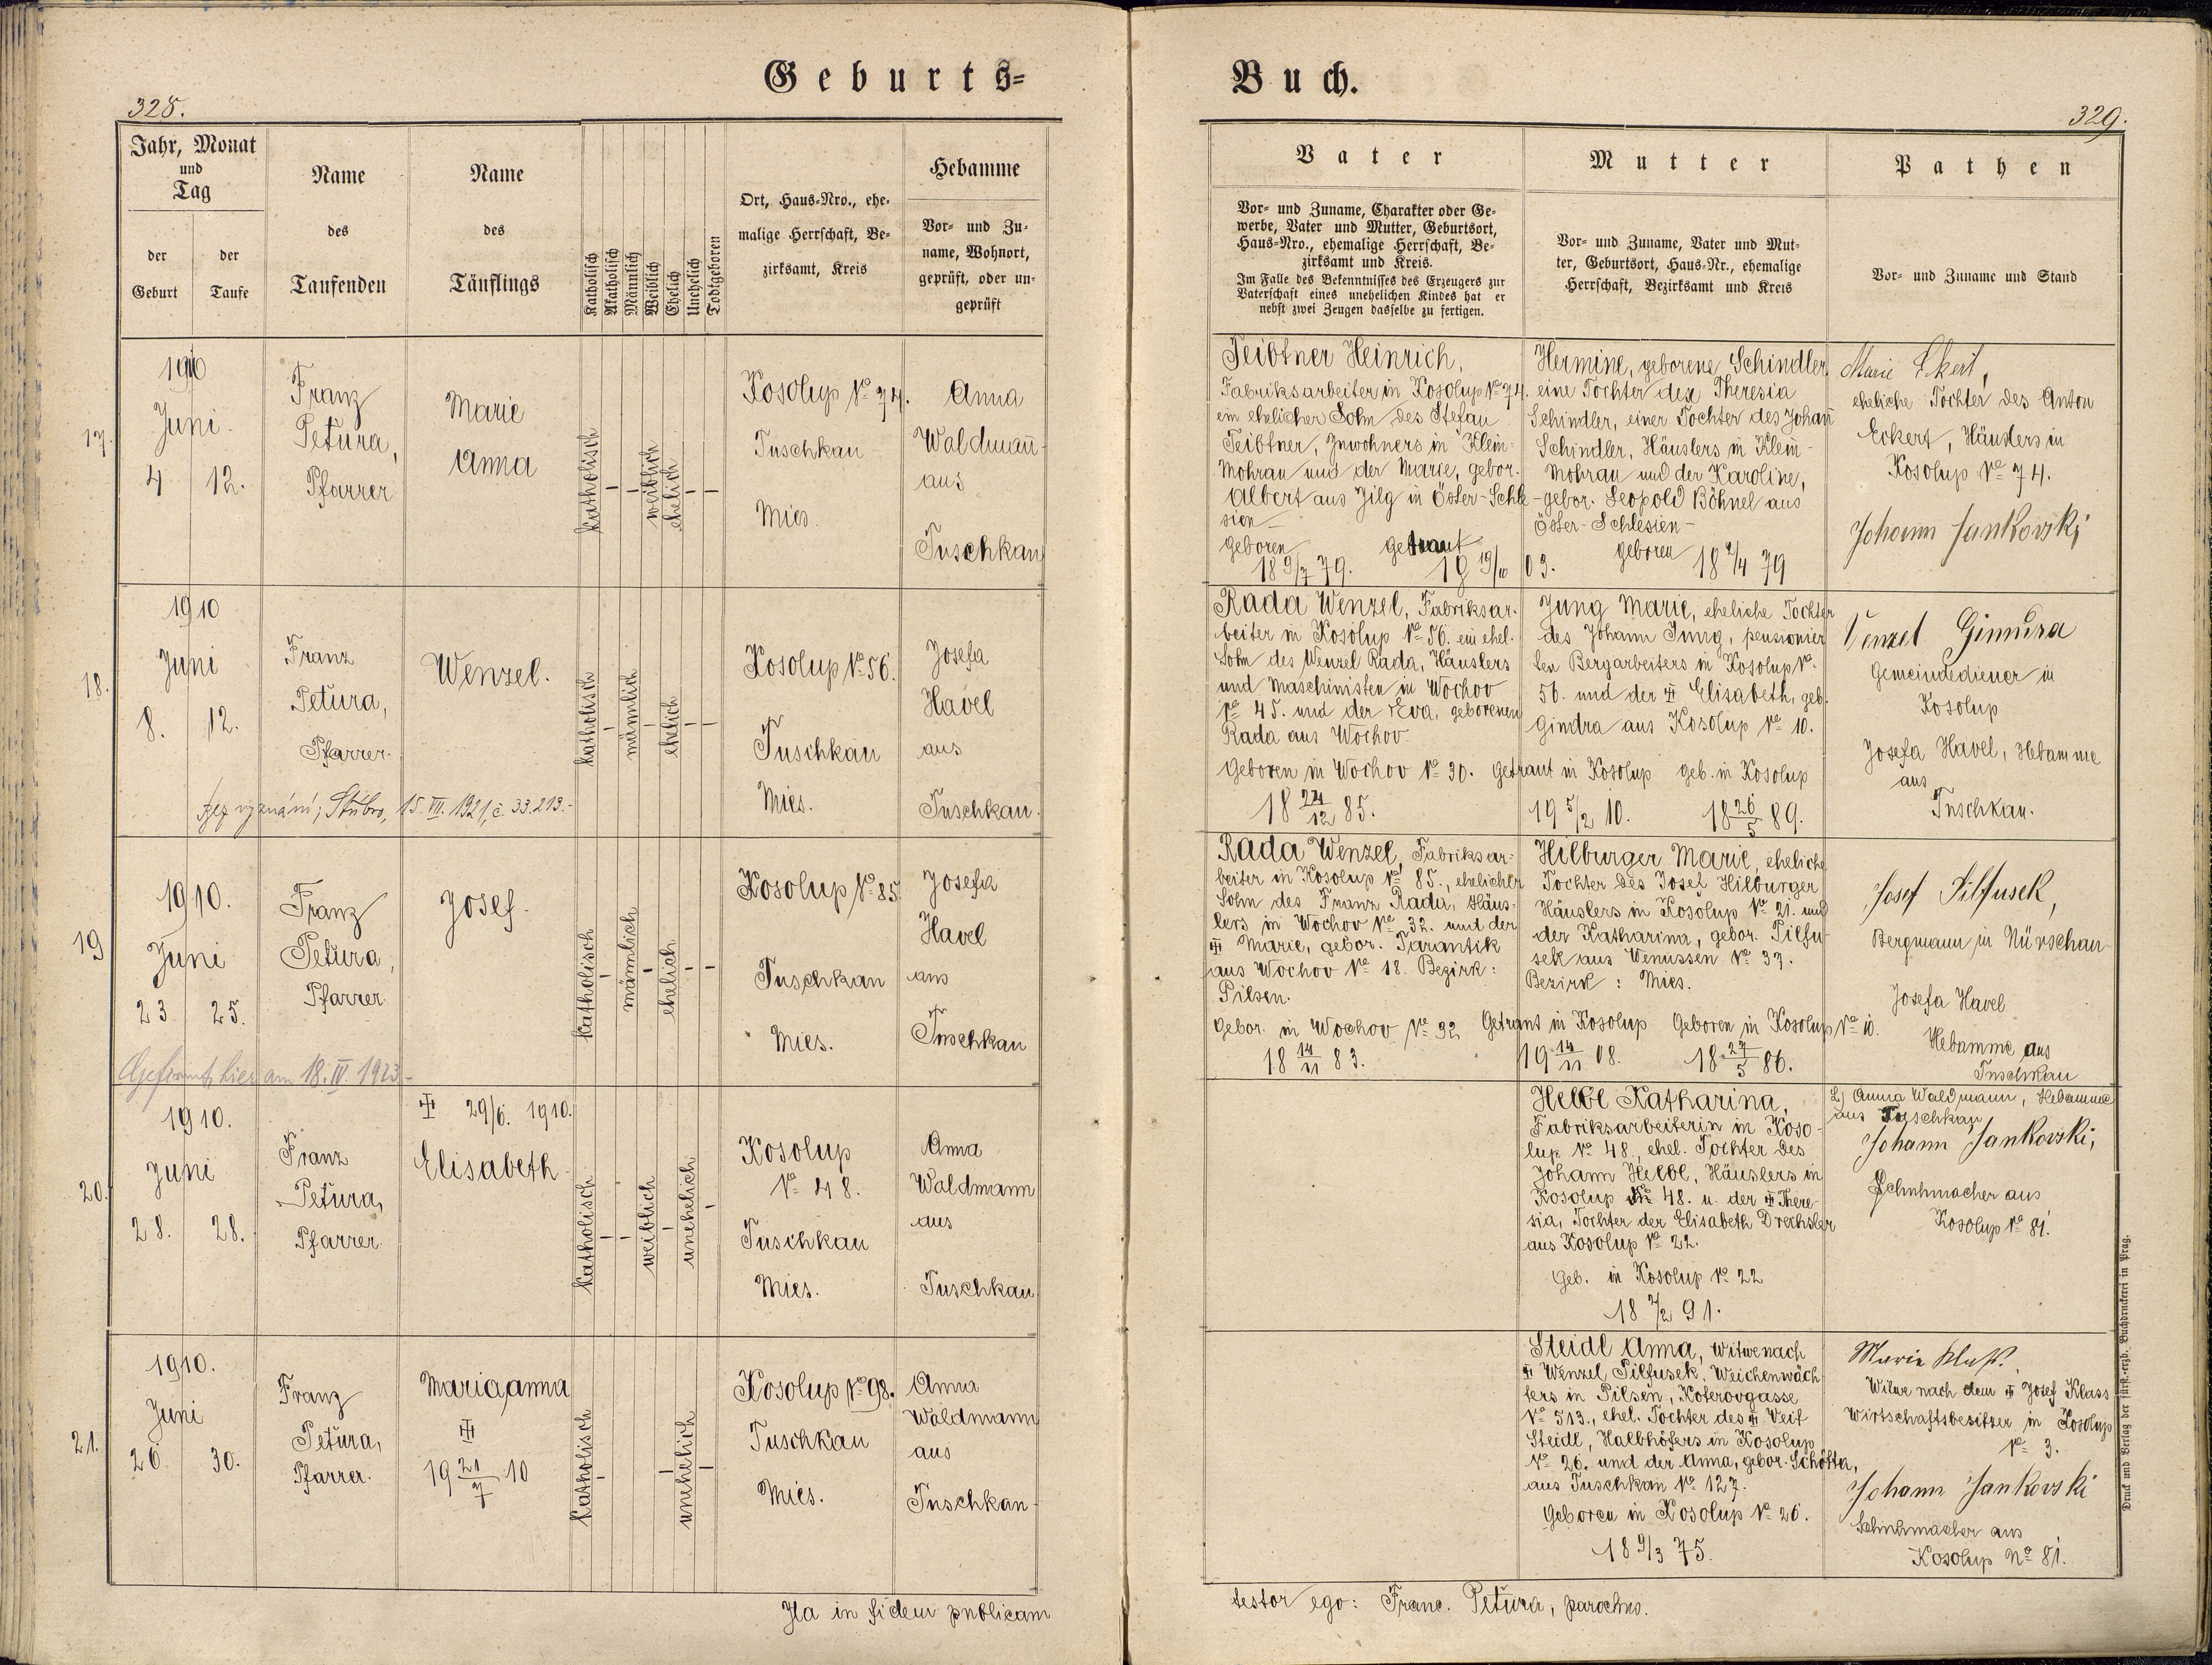 Geburts=
328.
Jahr, Monat
und
Tag
der
Geburt
der
Taufe
Name
des
Taufenden
Name
des
Täuflings
Katholisch
Akatholisch
Männlich
Weiblich
Ehelich
Unehelich
Todtgeboren
Ort, Haus-Nro., ehe-
malige Herrschaft, Be-
zirksamt, Kreis
Hebamme
Vor- und Zu-
name, Wohnort,
geprüft, oder un-
geprüft
17.
1910
Juni
4
12.
Franz
Petura,
Pfarrer
Marie
Anna
katholisch
weiblich
ehelich
Kosolup No 74.
Tuschkau
Mies.
Anna
Waldmann
aus
Tuschkau
18.
1910
Juni
8.
12.
Franz
Petura,
Pfarrer.
Wenzel.
katholisch
männlich
ehelich
Kosolup No 56.
Tuschkau
Mies.
Josefa
Havel
aus
Tuschkau.
bez vyznání; Stříbro, 15. VII. 1921, č. 33.213.-
19
1910.
Juni
23
25.
Franz
Petura,
Pfarrer
Josef.
katholisch
männlich
ehelich
Kosolup No 85.
Tuschkau
Mies.
Josefa
Havel
aus
Tuschkau
Gefirmt hier am 18. IV. 1923-
20.
1910.
Juni
28.
28.
Franz
Petura,
Pfarrer
29/6. 1910.
Elisabeth
katholisch
weiblich
unehelich
Kosolup
No 48.
Tuschkau
Mies.
Anna
Waldmann
aus
Tuschkau
21.
1910.
Juni
26
30.
Franz
Petura,
Pfarrer.
Maria Anna
19 21/7 10
katholisch
unehelich
Kosolup No 98.
Tuschkau
Mies.
Anna
Waldmann
aus
Tuschkau
Ita in fidem publicam
Buch.
329.
Vater
Vor- und Zuname, Charakter oder Ge-
werbe, Vater und Mutter, Geburtsort,
Haus-Nro., ehemalige Herrschaft, Be-
zirksamt und Kreis.
Im Falle des Bekenntnisses des Erzeugers zur
Vaterschaft eines unehelichen Kindes hat er
nebst zwei Zeugen dasselbe zu fertigen.
Mutter
Vor- und Zuname, Vater und Mut-
ter, Geburtsort, Haus-Nr., ehemalige
Herrschaft, Bezirksamt und Kreis
Pathen
Vor- und Zuname und Stand
Teibtner Heinrich,
Fabriksarbeiter in Kosolup No 74.
ein ehelicher Sohn des Stefan
Teibtner, Inwohners in Klein-
Mohrau und der Marie, gebor.
Albert aus Zilg in Öster-Schle-
sien
geboren
18 9/7 79.
getraut
19 19/10 03.
Hermine, geborene Schindler,
eine Tochter der Theresia
Schindler, einer Tochter des Johann
Schindler, Häuslers in Klein-
Mohrau und der Karoline,
gebor. Leopold Böhnel aus
Öster-Schlesien-
geboren
18 2/4 79
Marie Ekert,
eheliche Tochter des Anton
Eckert, Häuslers in
Kosolup No 74.
Johann Jankovski
Rada Wenzel, Fabriksar-
beiter in Kosolup No 56. ein ehel.
Sohn des Wenzel Rada, Häuslers
und Maschinisten in Wochov
No 45. und der Eva, geborenen
Rada aus Wochov.
Geboren in Wochov No 30.
18 24/12 85.
Getraut in Kosolup
19 5/2 10.
Jung Marie, eheliche Tochter
des Johann Jung, pensionier
ten Bergarbeiters in Kosolup No
56. und der Elisabeth, geb.
Gindra aus Kosolup No 10.
geb. in Kosolup
18 26/5 89.
Gemeindediener in
Kosolup
Josefa Havel, Hebamme
aus
Tuschkau.
Rada Wenzel, Fabriksar-
beiter in Kosolup No 85., ehelicher
Sohn des Franz Rada, Häus-
lers in Wochov No 32. und der
Marie, gebor. Tarantik
aus Wochov No 18. Bezirk:
Pilsen.
Gebor. in Wochov No 32
18 14/11 83.
Getraut in Kosolup
19 14/11 08.
Hilburger Marie, eheliche
Tochter des Josef Hilburger
Häuslers in Kosolup No 21. und
der Katharina, gebor. Pilfu-
sek aus Wenussen No 37.
Bezirk: Mies.
Geboren in Kosolup No 10.
18 27/5 86.
Josef Pilfusek,
Bergmann in Nürschan
Josefa Havel
Hebamme aus
Tuschkau
Helbl Katharina,
Fabriksarbeiterin in Koso-
lup No 48., ehel. Tochter des
Johann Helbl, Häuslers in
Kosolup No 48. u. der There-
sia, Tochter der Elisabeth Drechsler
aus Kosolup No 22.
Geb. in Kosolup No 22
18 7/2 91.
2) Anna Waldmann, Hebamme
aus Tuschkau
Johann Jankovski,
Schuhmacher aus
Kosolup No 81.
Steidl Anna, Witwe nach
Wenzel Pilfusek, Weichenwäch
ters in Pilsen, Koterovgasse
No 513., ehel. Tochter des Veit
Steidl, Halbhöfers in Kosolup
No 26. und der Anna, gebor.
aus Tuschkau No 127.
Geboren in Kosolup No 26.
18 9/3 75.
Witwe nach dem Josef Klass
Wirtschaftsbesitzer in Kosolup
No 3.
Johann Jankovski
Schuhmacher aus
Kosolup No 81.
testor ego: Franc. Petura, parochus.
Druck und Verlag der fürst.-erzb. Buchdruckerei in Prag.